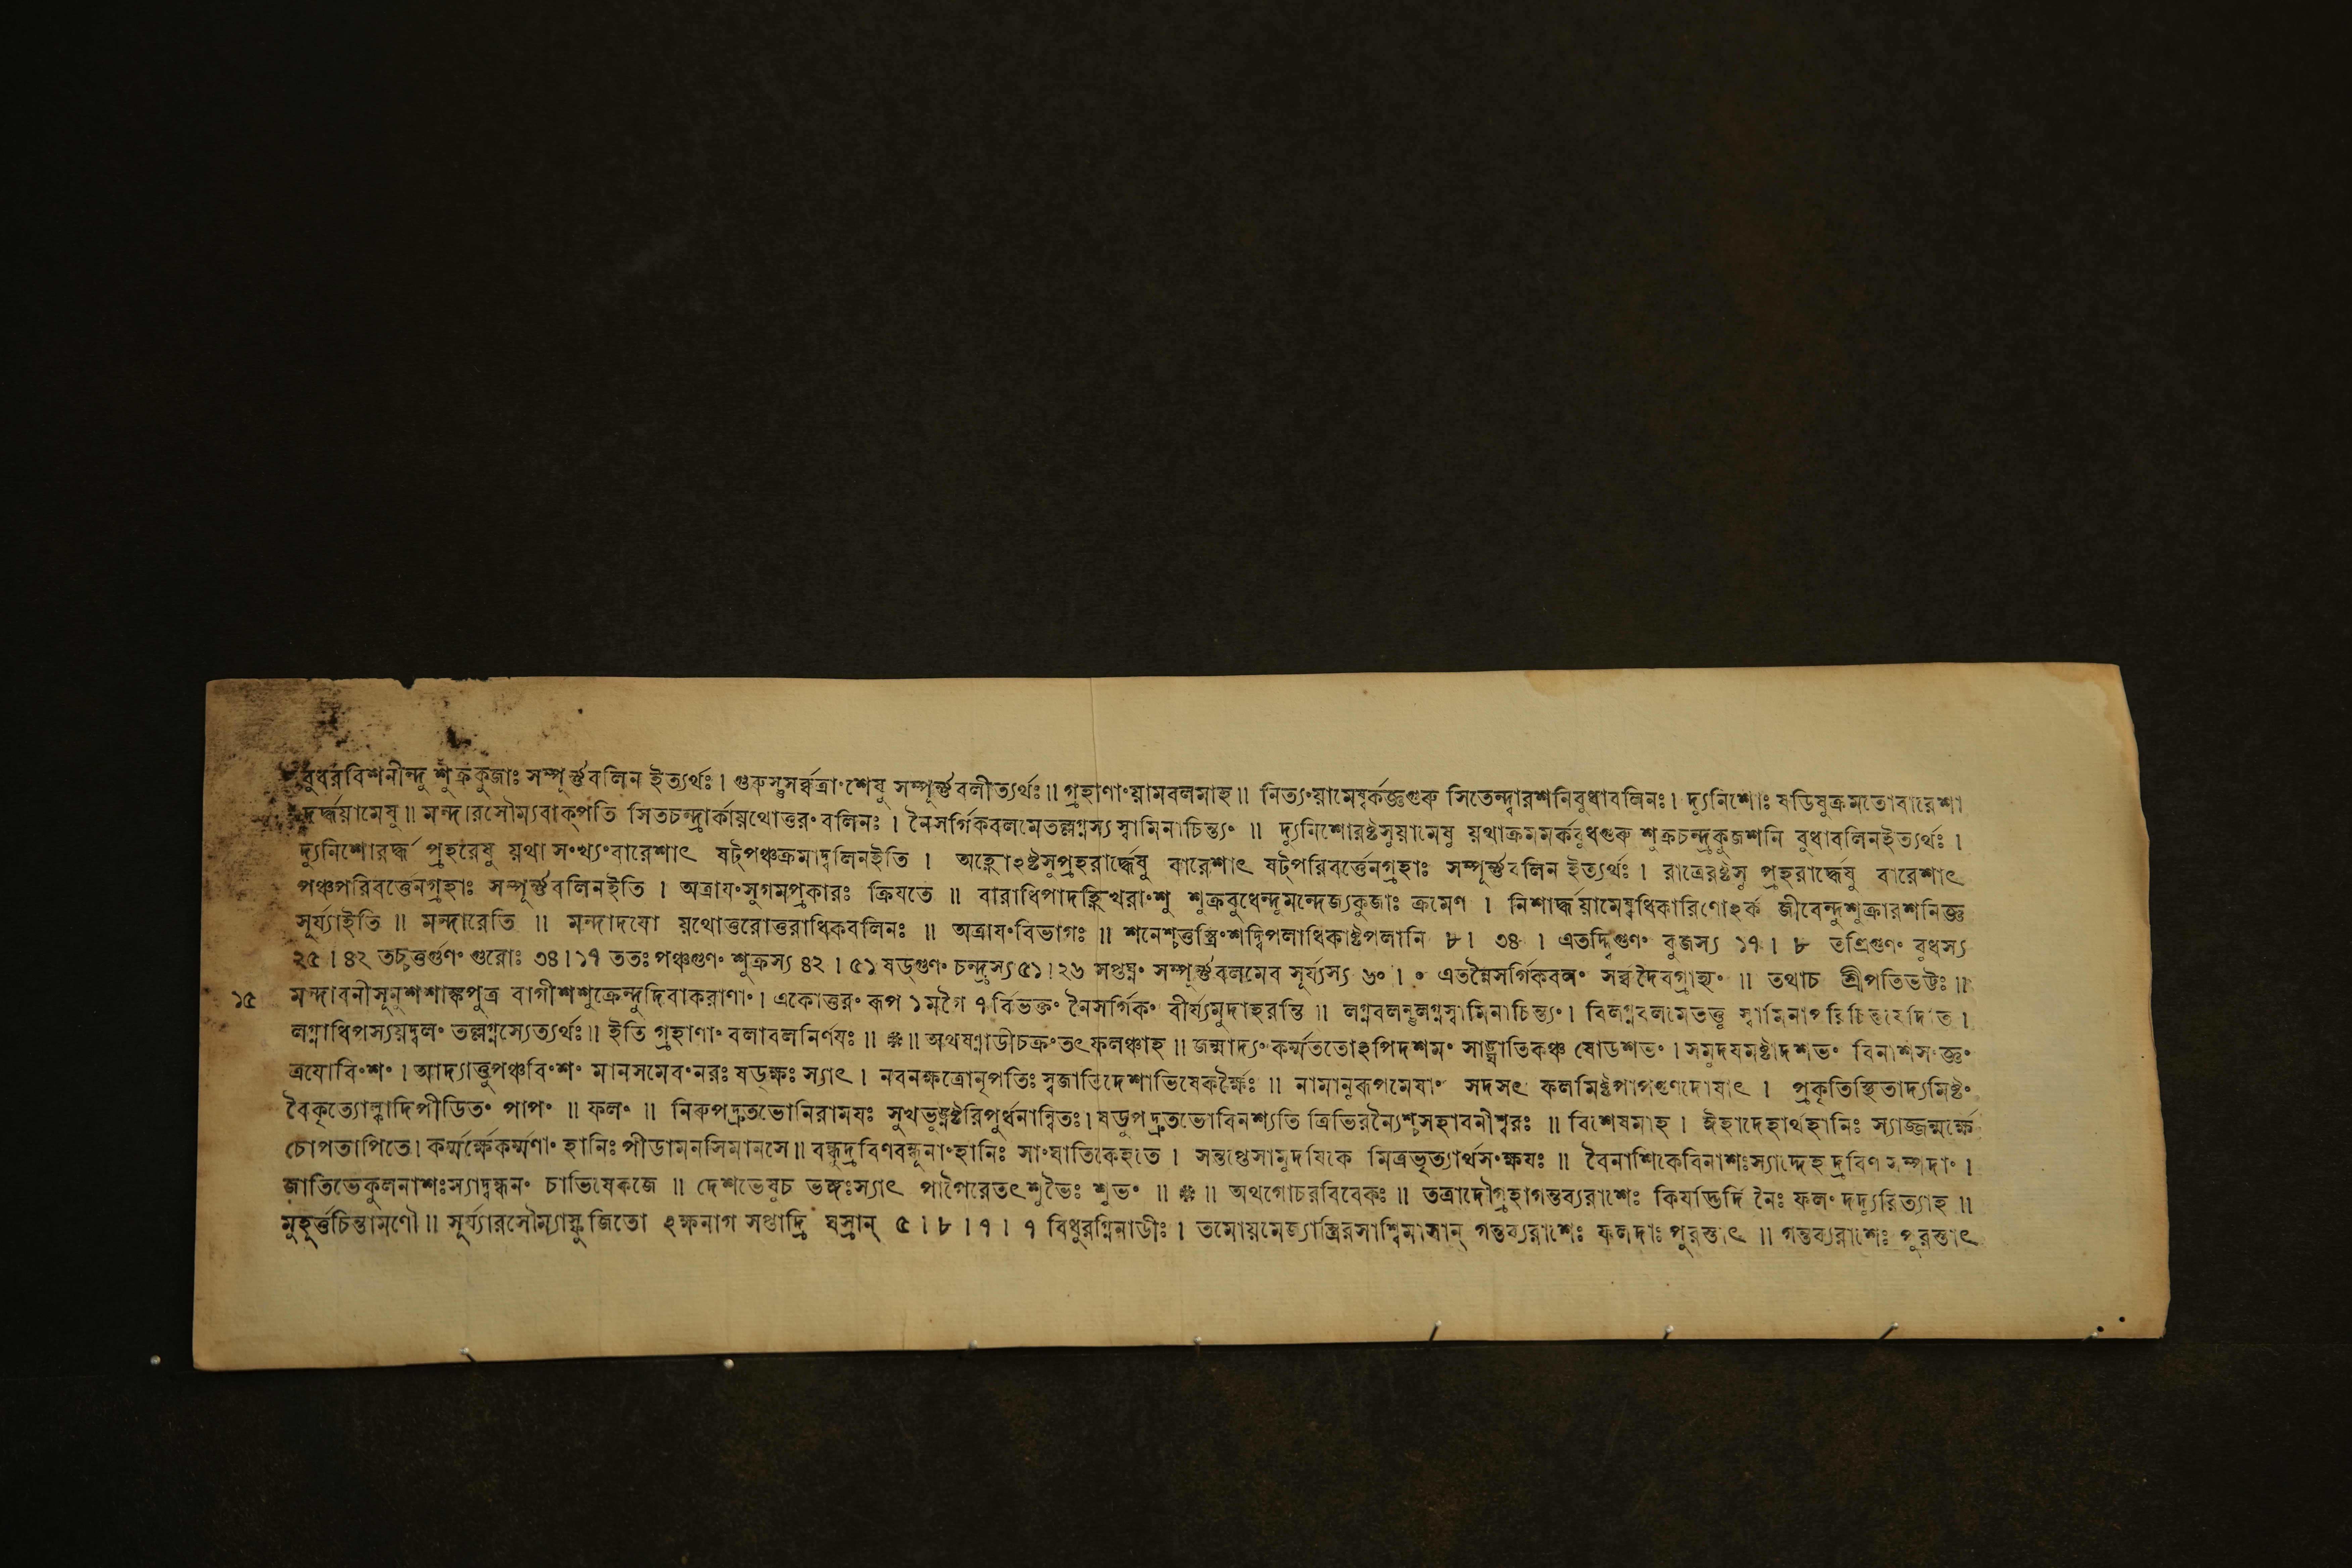 বুধরবিশনীন্দু শুক্রকুজাঃ সম্পূর্ন্নবলিন ইত্যর্থঃ। গুরুস্তুসর্ব্বত্রাংশেষু সম্পূর্ন্নবলীত্যর্থঃ॥ গ্রহাণাংয়ামবলমাহ॥ নিত্যংয়ামেষ্বর্কজ্ঞগুরু সিতেন্দ্বারশনিবুধাবলিনঃ। দ্যুনিশোঃ ষডিষুক্রমতোবারেশা
দর্দ্ধয়ামেষু॥ মন্দারসৌম্যবাক্পতি সিতচন্দ্রার্কায়থোত্তরং বলিনঃ। নৈসর্গিকবলমেতল্লগ্নস্য স্বামিনাচিন্ত্যং॥ দ্যুনিশোরষ্টসুয়ামেষু য়থাক্রমমর্কবুধগুরু শুক্রচন্দ্রকুজশনি বুধাবলিনইত্যর্থঃ।
দ্যুনিশোরর্দ্ধ প্রহরেষু য়থা সংখ্যংবারেশাৎ ষট্পঞ্চক্রমাদ্বলিনইতি। অহ্নোঽষ্টসুপ্রহরার্দ্ধেষু বারেশাৎ ষট্পরিবর্ত্তেনগ্রহাঃ সম্পূর্ন্নবলিন ইত্যর্থঃ। রাত্রেরষ্টসু প্রহরার্দ্ধেষু বারেশাৎ
পঞ্চপরিবর্ত্তেনগ্রহাঃ সম্পূর্ন্নবলিনইতি। অত্রাযংসুগমপ্রকারঃ ক্রিযতে॥ বারাধিপাদহ্নিখরাংশু শুক্রবুধেন্দুমন্দেজ্যকুজাঃ ক্রমেণ। নিশার্দ্ধয়ামেষ্বধিকারিণোঽর্ক জীবেন্দুশুক্রারশনিজ্ঞ
সূর্য্যাইতি॥ মন্দারেতি॥ মন্দাদযো য়থোত্তরোত্তরাধিকবলিনঃ॥ অত্রাযংবিভাগঃ॥ শনেশ্চতুস্ত্রিংশদ্বিপলাধিকাষ্টপলানি ৮। ৩৪। এতদ্দ্বিগুণং কুজস্য ১৭। ৮ তত্রিগুণং বুধস্য
২৫।৪২ তচ্চতুর্গুণং গুরোঃ ৩৪।১৭ ততঃ পঞ্চগুণং শুক্রস্য ৪২।৫১ ষড্গুণং চন্দ্রস্য ৫১।২৬ সপ্তঘ্নং সম্পূর্ন্নবলমেব সূর্য্যস্য ৬০।০ এতন্নৈসর্গিকবলং সর্ব্বদৈবগ্রাহ্যং॥ তথাচ শ্রীপতিভট্টঃ॥
১৫ মন্দাবনীসূনুশশাঙ্কপুত্র বাগীশশুক্রেন্দুদিবাকরাণাং। একোত্তরং রূপ ১ মগৈ ৭ র্বিভক্তং নৈসর্গিকং বীর্য্যমুদাহরন্তি॥ লগ্নবলন্তুলগ্নস্বামিনাচিন্ত্যং। বিলগ্নবলমেতত্তু স্বামিনাপরিচিন্তযেদিতি।
লগ্নাধিপস্যয়দ্বলং তল্লগ্নস্যেত্যর্থঃ॥ ইতি গ্রহাণাং বলাবলনির্ণযঃ॥ ❈॥ অথষণ্নাডীচক্রংতৎফলঞ্চাহ॥ জন্মাদ্যং কর্ম্মততোঽপিদশমং সাঙ্ঘাতিকঞ্চ ষোডশভং। সমুদযমষ্টাদশভং বিনাশসংজ্ঞং
ত্রযোবিংশং। আদ্যাত্তুপঞ্চবিংশং মানসমেবংনরঃ ষড্ক্ষঃ স্যাৎ। নবনক্ষত্রোনৃপতিঃ স্বজাতিদেশাভিষেকর্ক্ষৈঃ॥ নামানুরূপমেষাং সদসৎ ফলমিষ্টপাপগুণদোষাৎ। প্রকৃতিস্থিতাদ্যমিষ্টং
বৈকৃত্যোল্কাদিপীডিতং পাপং॥ ফলং॥ নিরুপদ্রুতভোনিরামযঃ সুখভুঙ্নষ্টরিপুর্ধনান্বিতঃ। ষডুপদ্রুতভোবিনশ্যতি ত্রিভিরন্যৈশ্চসহাবনীশ্বরঃ॥ বিশেষমাহ। ঈহাদেহার্থহানিঃ স্যাজ্জন্মর্ক্ষে
চোপতাপিতে। কর্ম্মর্ক্ষেকর্ম্মণাং হানিঃ পীডামনসিমানসে॥ বন্ধুদ্রবিণবন্ধূনাংহানিঃ সাংঘাতিকেহতে। সন্তপ্তেসামুদযিকে মিত্রভৃত্যার্থসংক্ষযঃ॥ বৈনাশিকেবিনাশঃস্যাদ্দেহ দ্রবিণ সম্পদাং।
জাতিভেকুলনাশঃস্যাদ্বন্ধনং চাভিষেকজে॥ দেশভেষুচ ভঙ্গঃস্যাৎ পাপৈরেতৎশুভৈঃ শুভং॥ ❈॥ অথগোচরবিবেকঃ॥ তত্রাদৌগ্রহাগন্তব্যরাশেঃ কিযদ্ভির্দি নৈঃ ফলং দদ্যুরিত্যাহ॥
মুহূর্ত্তচিন্তামণৌ॥ সূর্য্যারসৌম্যাস্ফুজিতো ঽক্ষনাগ সপ্তাদ্রি ঘস্রান্ ৫।৮।৭।৭ বিধুরগ্নিনাডীঃ। তমোয়মেজ্যাস্ত্রিরসাশ্বিমাসান্ গন্তব্যরাশেঃ ফলদাঃ পুরস্তাৎ॥ গন্তব্যরাশেঃ পুরস্তাৎ